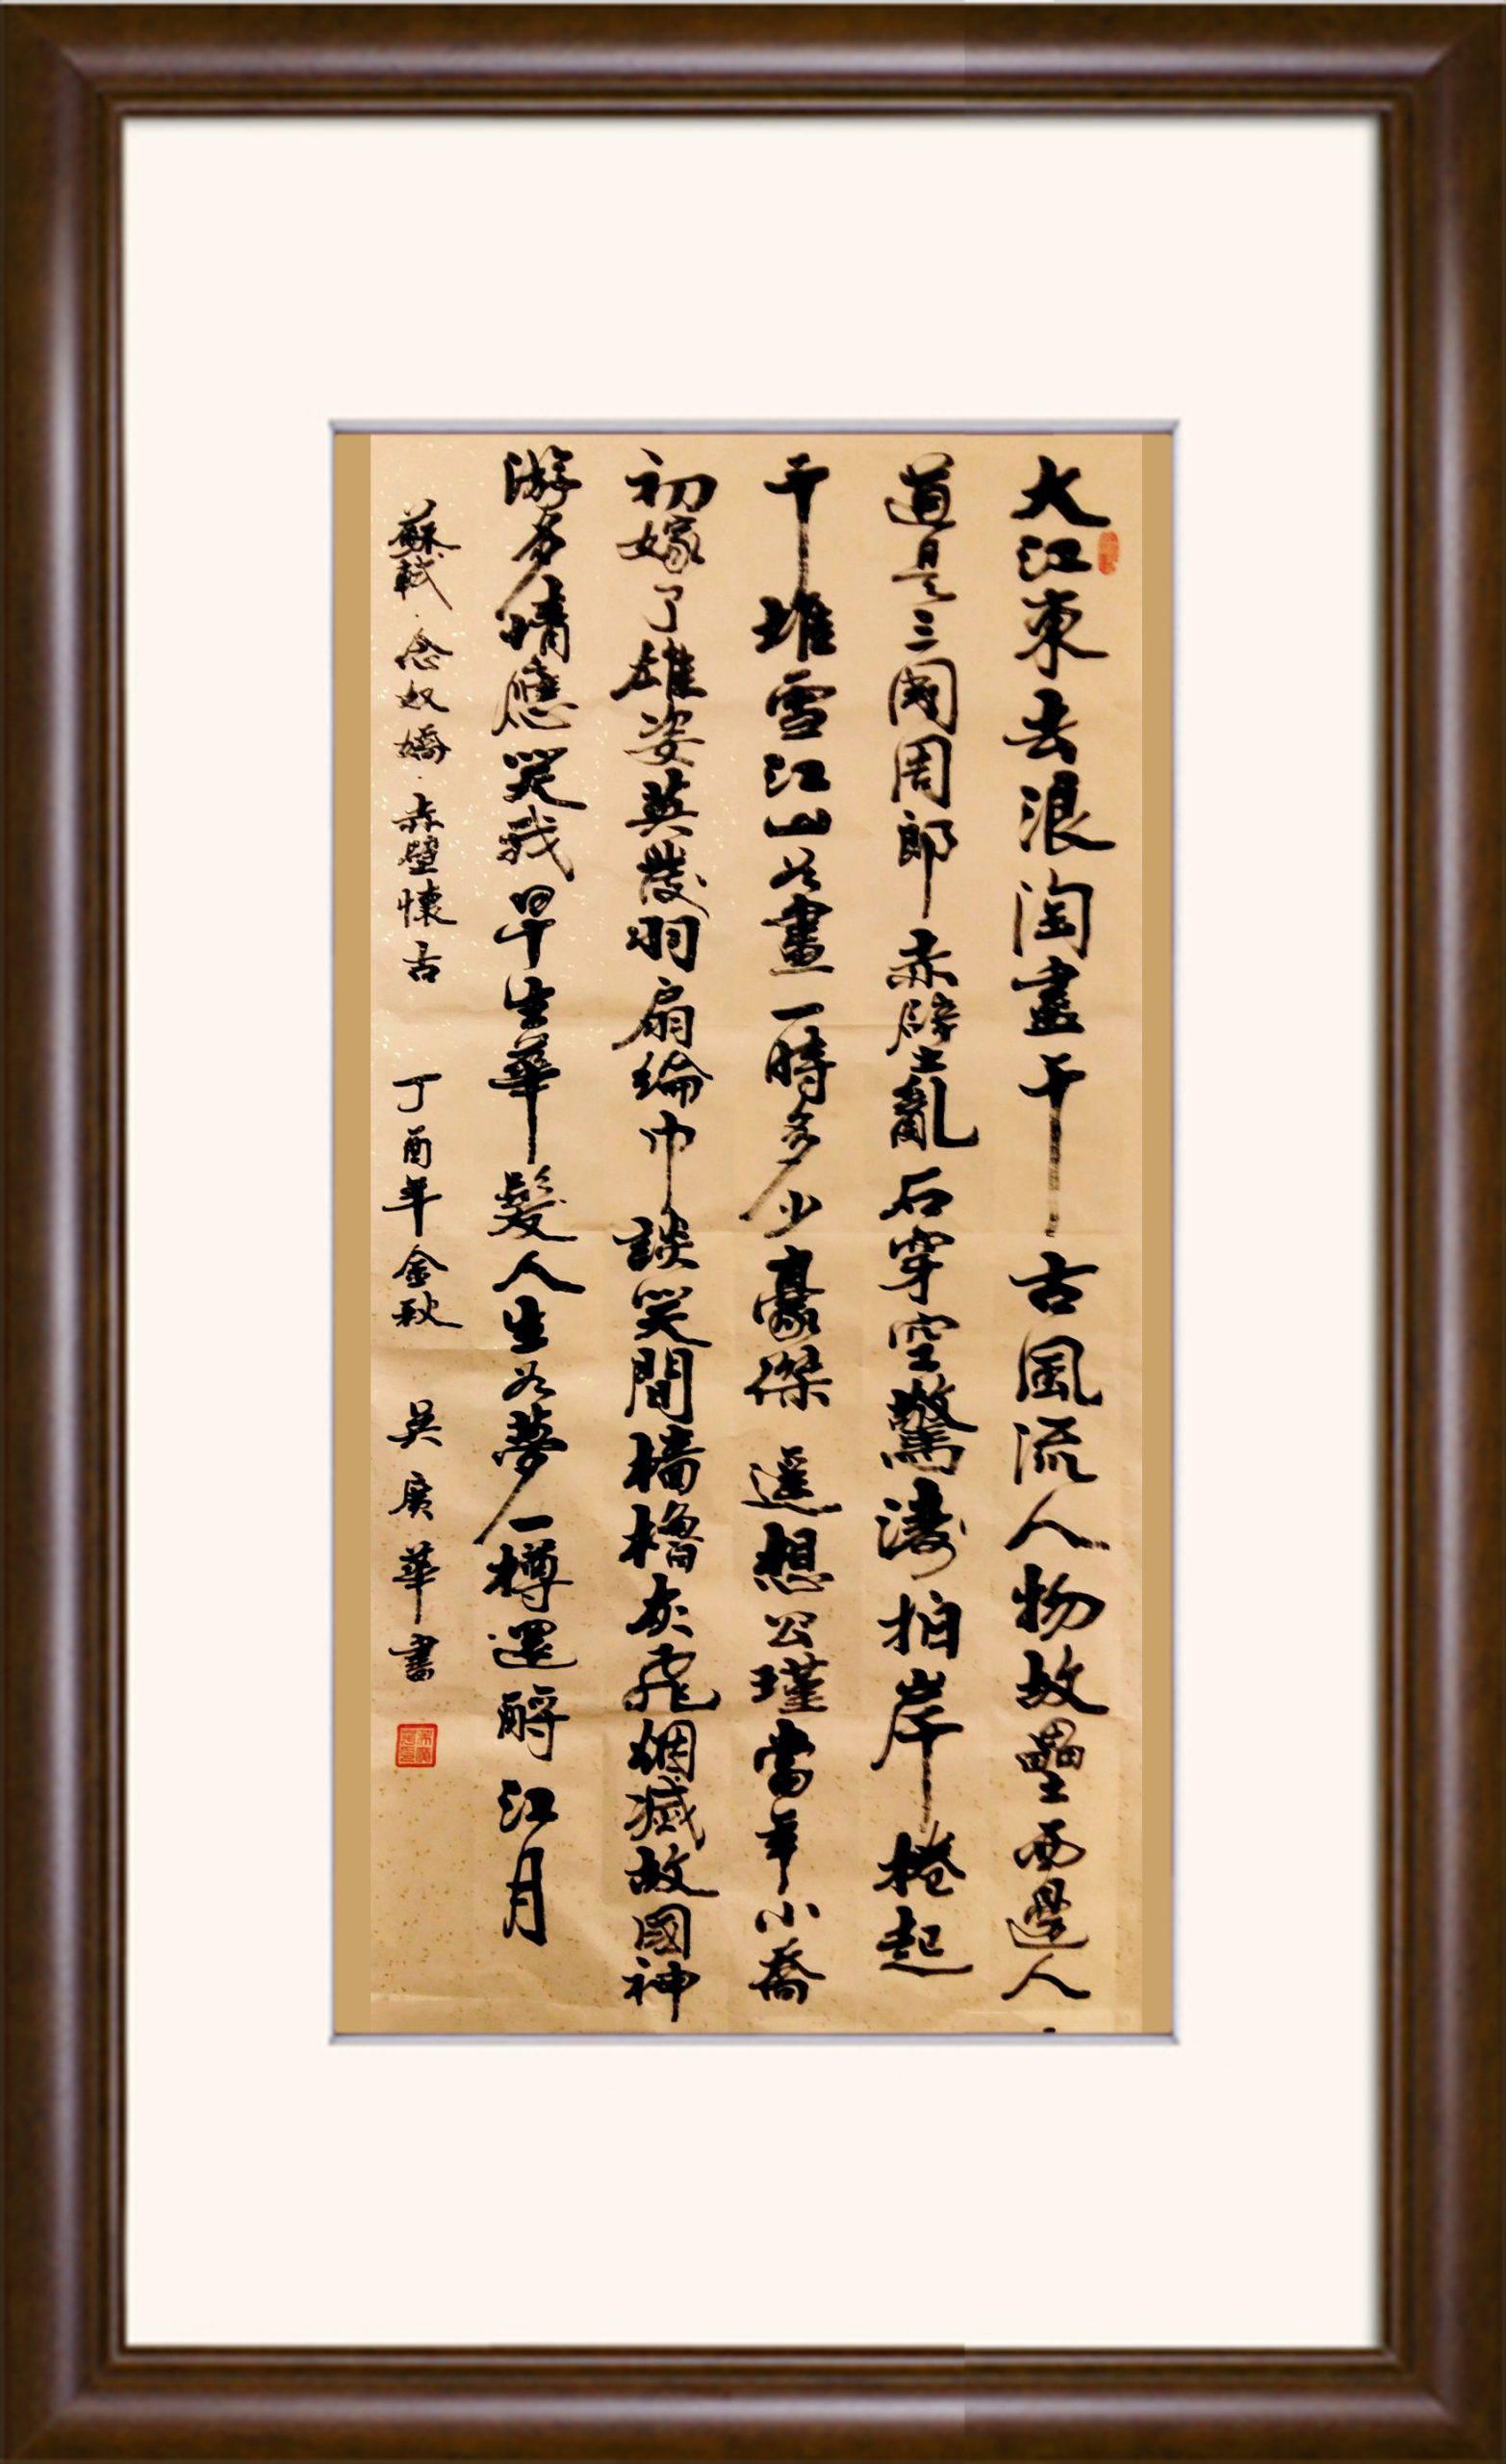 大江東去浪淘盡千古風流人物故壘西邊人
道是三國周郎赤壁亂石穿空驚濤拍岸捲起
千堆雪江山如畫一時多少豪傑遥想公瑾當年小喬
初嫁了雄姿英發羽扇綸巾談笑間檣櫓灰飛烟滅故國神
游多情應笑我早生華髮人生如夢一樽還酹江月
蘇軾·念奴嬌·赤壁懷古 丁酉年金秋 吳廣華書